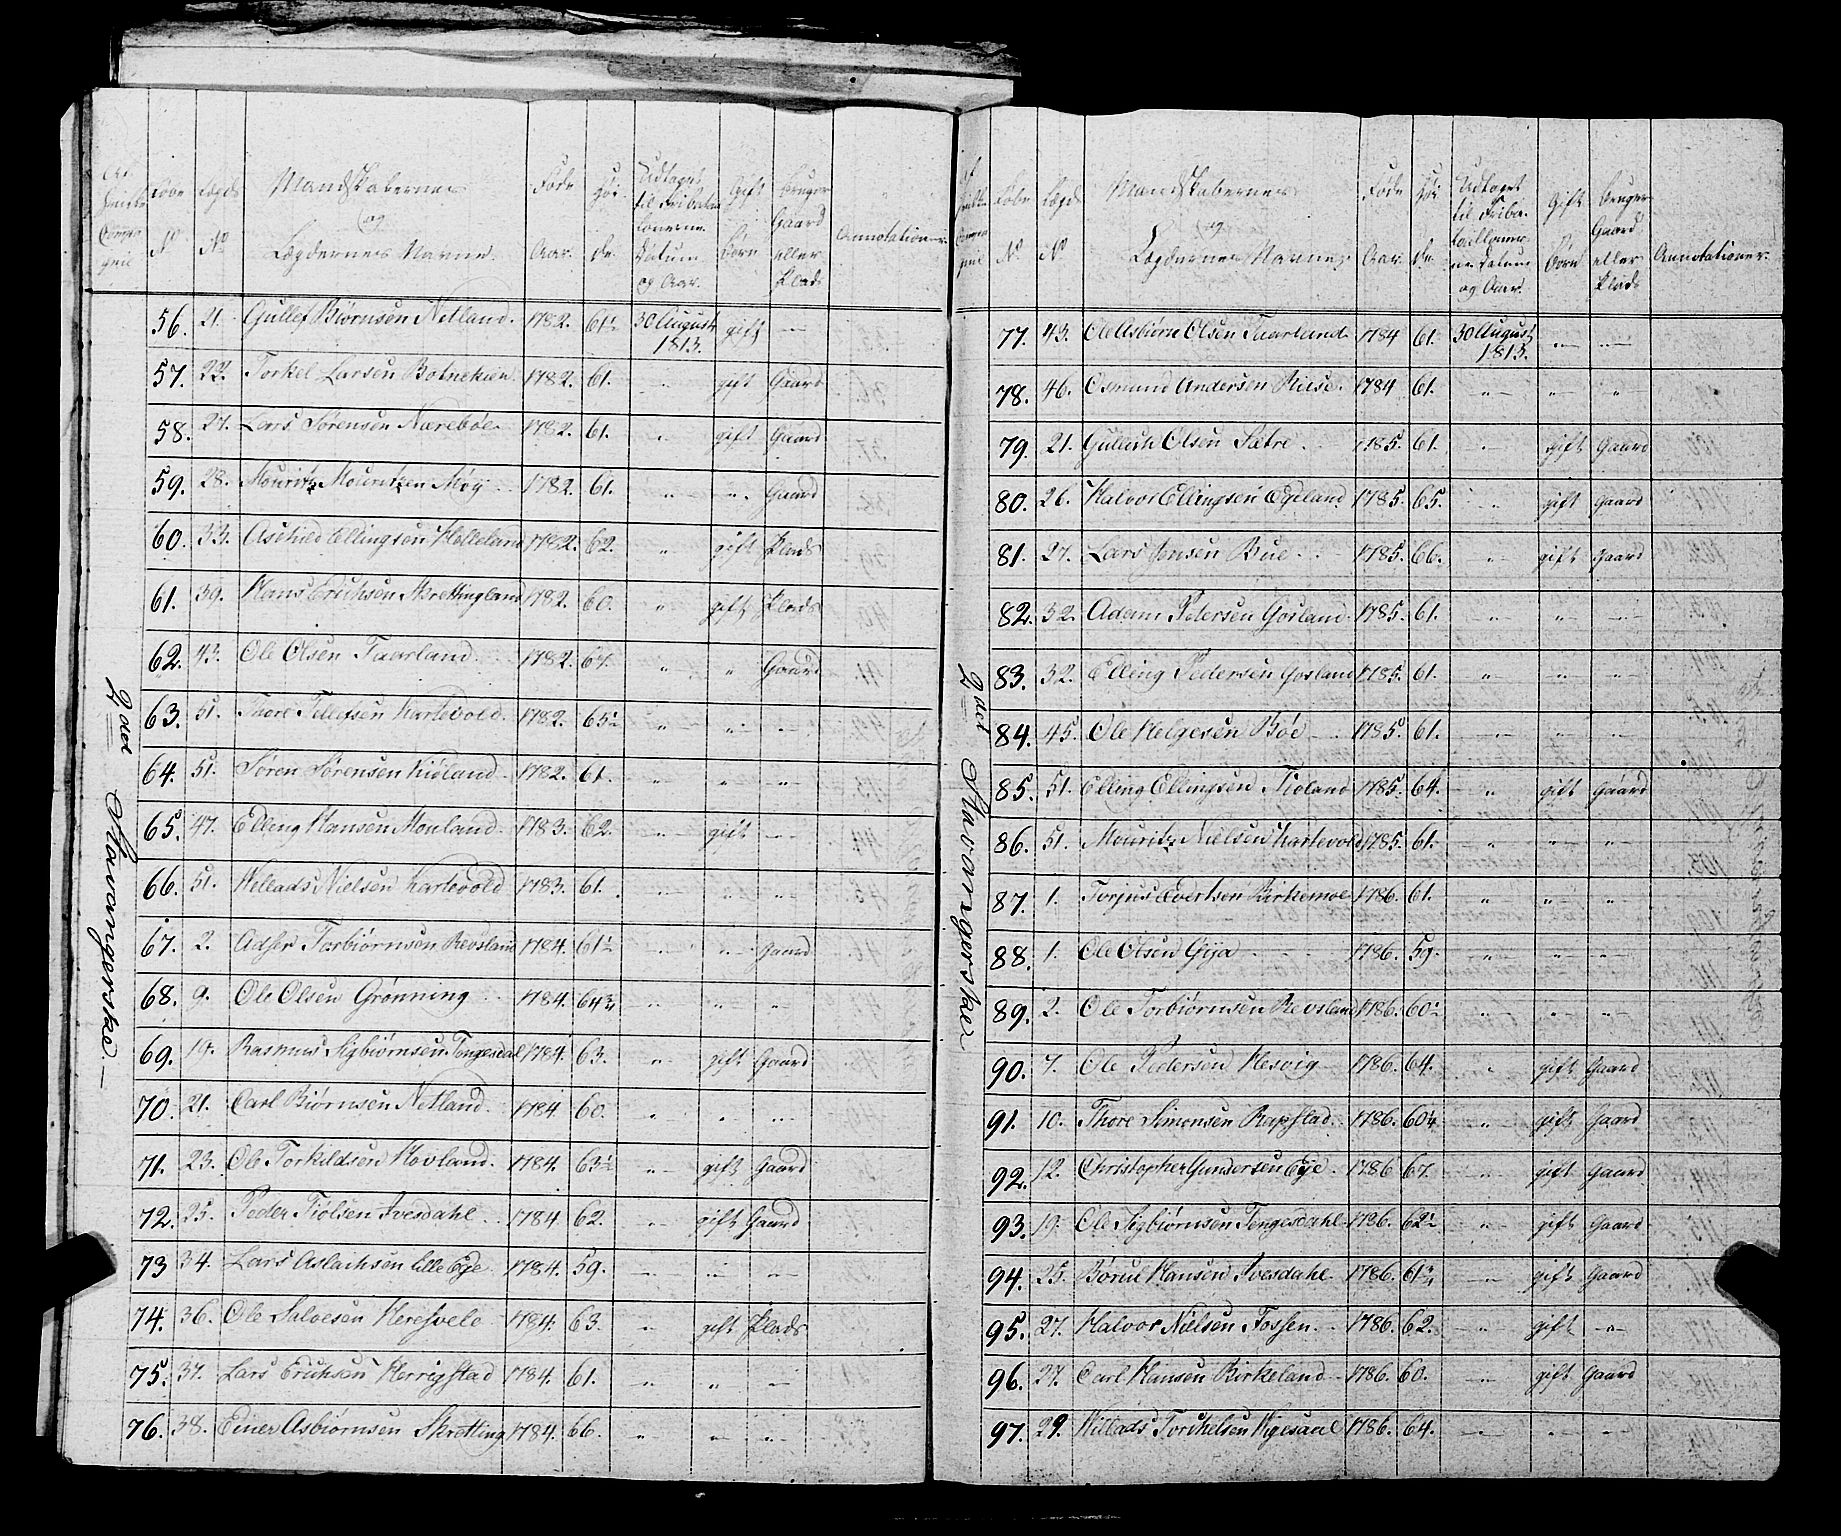 Løbe N° Lægds N° Mandskabernes og Lægdernes Navne. Føde Aar. Høi de. Udtaget til Fribatai lonerne Datum og Aar. Gift Børn Bruger Gaard eller Plads Annotationer
2det Stavangerske
56. 21. Gullef Biørnsen Netland. 1782. 61½ 30 August 1813. gift —„—
57. 22. Torkel Larsen Botnekien. 1782. 61. „ gift Gaard
58. 27. Lars Sørensen Nærebøe. 1782. 61. „ gift Gaard
59. 28. Mouritz Mouritzen Møÿ. 1782. 61. „ „ Gaard
60. 33. Aschild Ellingsen Helleland 1782. 62. „ gift Plads
61. 39. Hans Erichsen Skrettingland 1782. 60. „ gift Plads
62. 43. Ole Olsen Taarland. 1782. 67. „ „ Gaard
63. 51. Tore Tellefsen Kartevold. 1782. 65½ „ „ „
64. 51. Søren Sørensen Kioland. 1782. 61. „ „ „
65. 47. Elling Hansen Houland. 1783. 62. „ gift „
66. 51. Nellads Nielsen Kartevold 1783. 61. „ „ „
67. 2. Adser Torbiørnsen Revsland 1784. 61½ „ „ Gaard
68. 9. Ole Olsen Grønning 1784. 64¾ „ „ „
69. 19. Rasmus Sigbiørnsen Tengesdal 1784. 63. „ gift Gaard
70. 21. Carl Biørnsen Netland. 1784 60. „ „ „
71. 23. Ole Torkildsen Hovland. 1784. 63½ „ gift Gaard
72. 25. Peder Tiølsen Ivesdahl 1784 62. „ gift Gaard
73 34. Lars Aslachsen lille Eje 1784. 59. „ „ „
74. 36. Ole Salvesen Heresvele 1784. 63. „ gift Plads
75. 37. Lars Erichsen Herrigstad 1784. 61. „ „ „
76. 38. Einer Asbiørnsen Skretting 1784. 66. „ „ „
Løbe N° Lægds N° Mandskabernes og Lægdernes Navne. Føde Aar. Høi de Udtaget til Friba taillioner ne Datum og Aar. Gift Børn Bruger Gaard eller Plads Annotationer.
2det Stavangerske
77. 43. Ole Asbiørn Olsen Taarland 1784 61. 30 August 1813. „ „
78. 46. Osmund Andersen Riise. 1784 61. „ „ „
79. 21. Gullich Olsen Sætre. 1785. 61. „ gift Gaard
80. 26. Halvor Ellingsen Egeland. 1785. 65. „ gift Gaard
81. 27. Lars Jensen Bue. 1785. 66. „ gift Gaard
82. 32. Adam Pedersen Gosland. 1785. 61. „ „ „
83. 32. Elling Pedersen Gosland 1785. 61. „ „ „
84. 45. Ole Helgesen Bøe 1785. 61. „ „ „
85. 51. Elling Ellingsen Tioland 1785. 64. „ gift Gaard
86. 51. Mouritz Nielsen Kartevold 1785. 61. „ „ „
87. 1. Torjus Evertsen Birkemoe 1786. 61. „ „ „
88. 1. Ole Olsen Gÿa 1786. 59. „ „ „
89. 2. Ole Torbiørnsen Revsland 1786. 60½ „ „ „
90. 7. Ole Pedersen Hesvig 1786. 64. „ gift Gaard
91. 10. Thore Simonsen Rapstad. 1786. 60¼ „ gift Gaard
92. 12. Christopher Gundersen Eÿe. 1786 67. „ gift Gaard
93. 19. Ole Sigbiørnsen Tengesdahl 1786. 62½ „ gift Gaard
94. 25. Børne Hansen Ivesdahl. 1786. 61¾ „ gift Gaard
95. 27. Halvor Nielsen Fossen. 1786. 62. „ gift „
96. 27. Carl Hansen Birkeland 1786. 60. gift Gaard
97. 29. Willads Torchelsen Wigesaae 1786. 64. „ „ „